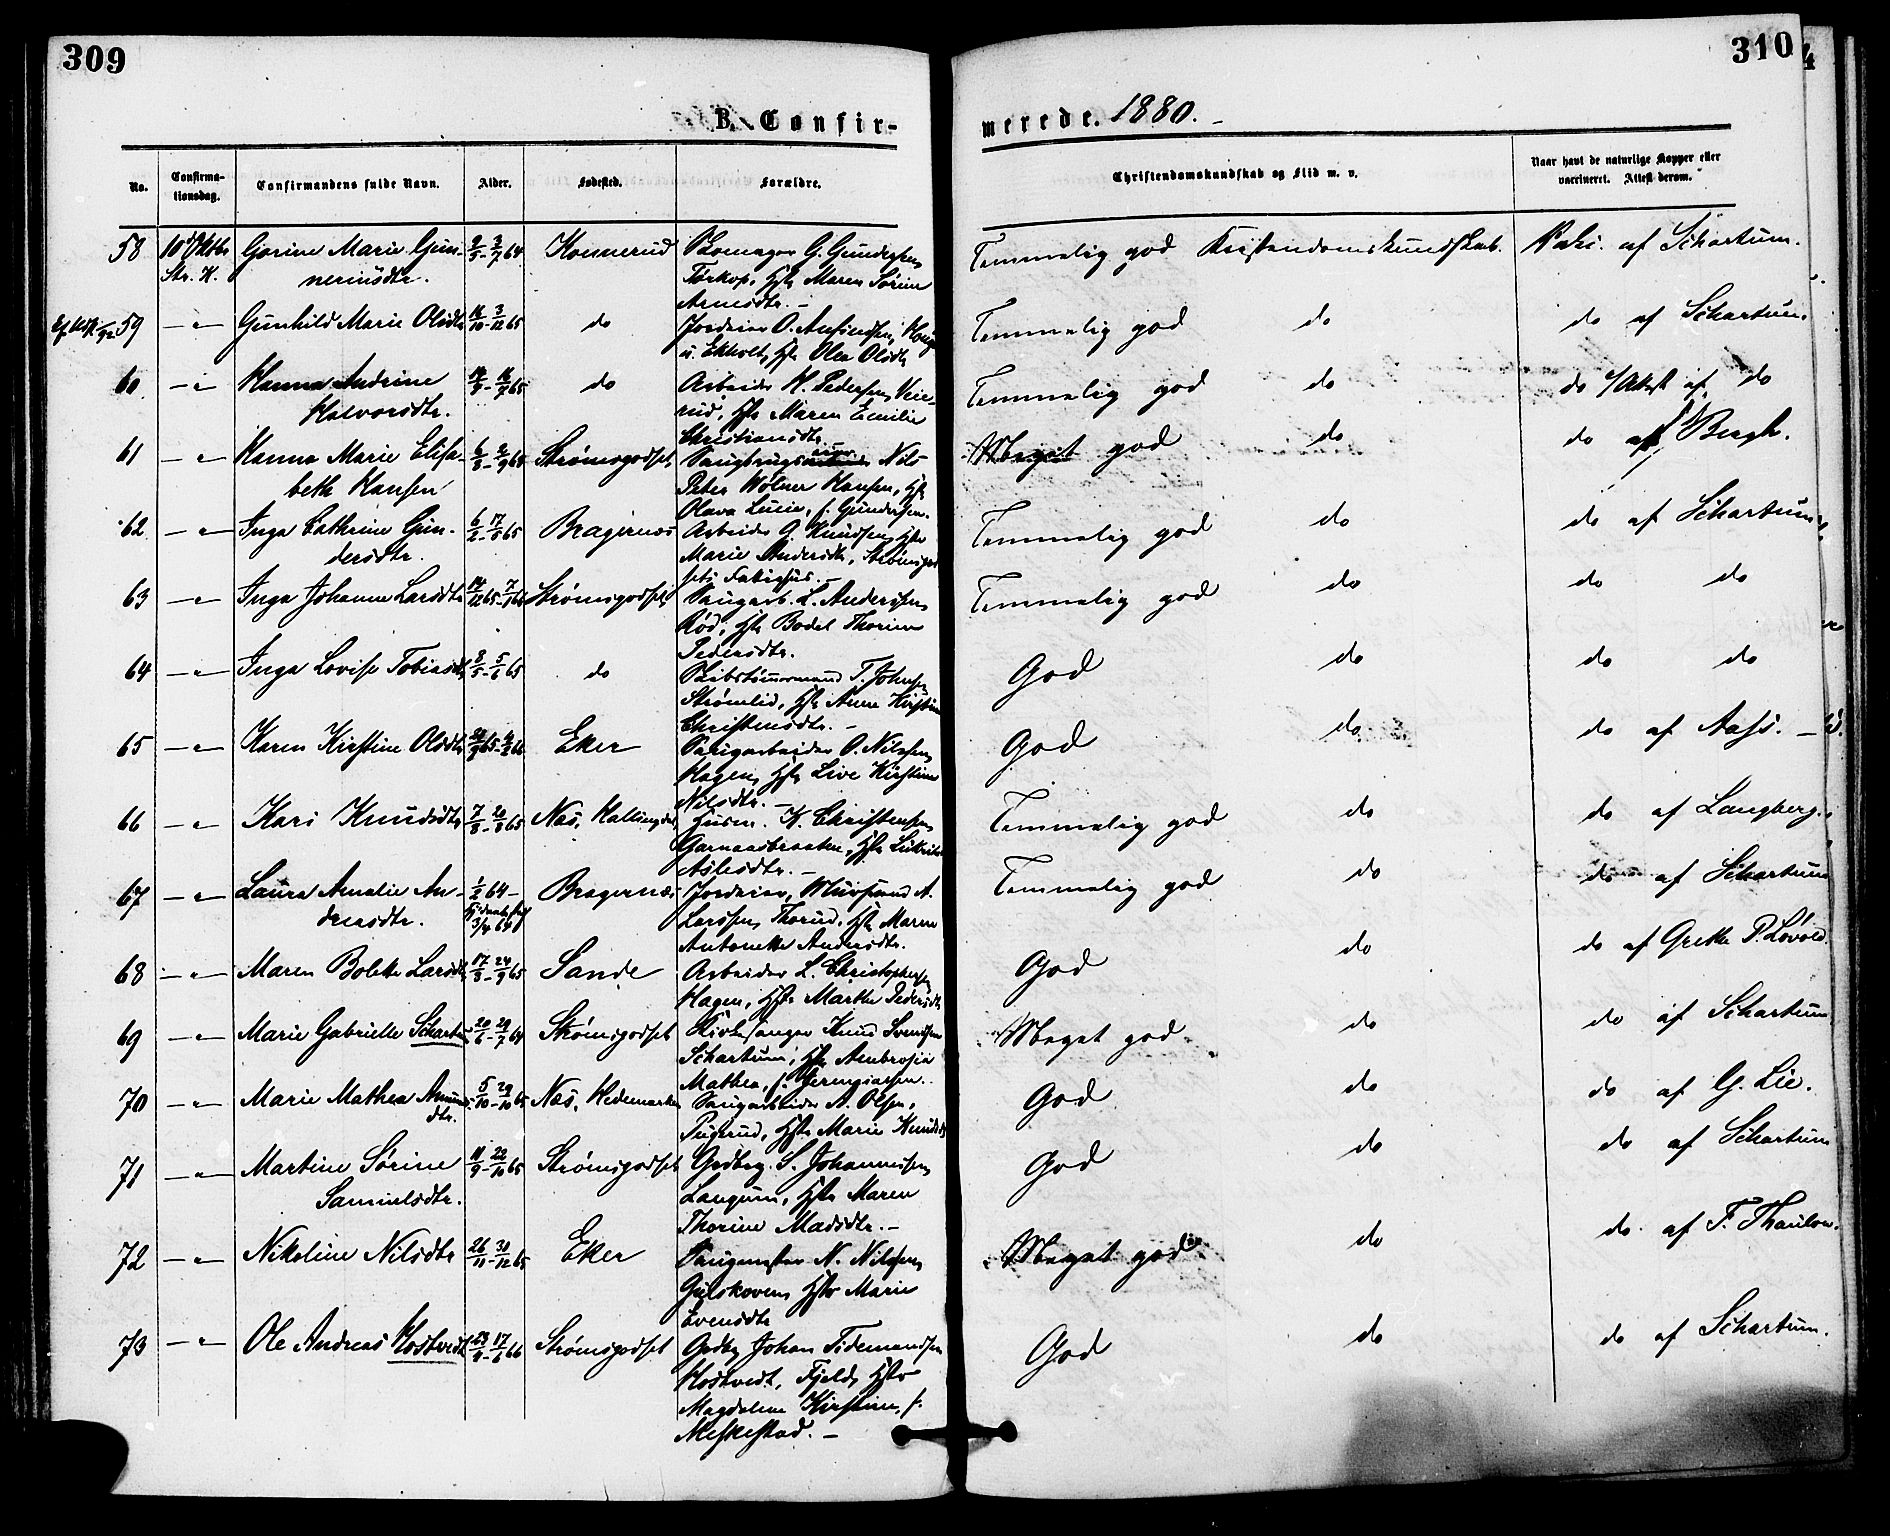 309
310
B. Confir-
merede. 1880.
No.
Confirma-
tionsdag.
Confirmandens fulde Navn.
Alder.
Fødested.
Forældre.
Christendomskundskab og Flid m. v.
Naar havt de naturlige Kopper eller
vaccineret. Attest derom.
58 10 Oktbr Gorine Marie Gun- 2/5 - 3/7 64 Konnerud Skomager G. Gundersen
Str. K. neriusdtr. Torkop, Hstr Maren Sørine
Arnesdtr. -
Temmelig god Kristendomskundskab. Vaks. af Schartum.
59 - " - Gunhild Marie Olsdtr 16/10 - 3/12 65 do Jordeier O. Amundsen,
u. Ekholt, Hstr Olea Olsdtr
Temmelig god do do af Schartum.
60 - " - Hanna Andrine 14/3 - 16/7 65 do Arbeider H. Pedersen, Veie-
Halvorsdtr. rud, Hstr Maren Emilie
Christiansdtr.
Temmelig god do do af do
61 - " - Hanna Marie Elisa- 6/8 - 2/9 65 Strømsgodset Nils
beth Hansen Peter Wølner Hansen, Hstr
Olava Lucie, f. Gundersen.
Meget god do do af Bergh.
62 - " - Inga Cathrine Gun- 6/2 - 17/5 65 Bragernæs Arbeider G. Knudsen, Hstr
dersdtr. Marie Andersdtr, Strømsgod-
sets Fattighus. -
Temmelig god do do af Schartum
63 - " - Inga Johanne Larsdtr 14/12 65 - 7/1 66 Strømsgodset Saugarb. L. Andersen,
Rød, Hstr Bodel Thorine
Pedersdtr.
Temmelig god do do do
64 - " - Inga Lovise Tobiasdtr 8/5 - 5/6 65 do Skibstømmermand T. Johnsen
Strømlid, Hstr Anne Kirstine
Christensdtr. -
God do do do
65 - " - Karen Kirstine Olsdtr Eker Saugarbeider O. Nilssen,
Hagen, Hstr Live Kirstine
Nilsdtr. -
God do do af Aass. -
66 - " - Kari Knudsdtr 7/8 - 20/8 65 Næs, Hallingdal, Husm. K. Christensen
Garnaasbraaten, Hstr
Aslesdtr. -
Temmelig god do do af Langberg.
67 - " - Laura Amalie An- 1/2 64 - Bragernæs Jordeier, Murswend A.
dersdtr. 3/4 64 Larssen, Thorud, Hstr Maren
Antonette Andersdtr.
Temmelig god do do af Schartum
68 - " - Maren Bolette Larsdtr 17/8 - 24/9 65 Sande Arbeider L. Christophersen
Hagen, Hstr Marthe Pedersdtr
God do do af Grethe P. Løvold
69 - " - Marie Gabrielle Schartum 20/6 - 29/7 64 Strømsgodset Kirkesanger Knud Svendsen
Schartum, Hstr Ambrosia
Mathea, f. Jeremiassen.
Meget god do do af Schartum
70 - " - Marie Mathea Amunds- 5/10 - 29/10 65 Næs, Hedemarken Saugarbeider A. Olsen,
dtr. Pugerud, Hstr Marie Knudsdtr
God do do af G. Lie.
71 - " - Martine Sørine 11/9 - 22/10 65 Strømsgodset Grdbrg. S. Johannesen,
Samuelsdtr. Langum, Hstr Maren
Thorine Madsdtr. -
God do do af Schartum
72 - " - Nikoline Nilsdtr 26/11 - 31/12 65 Eker Saugmester N. Nilssen,
Gulskoven, Hstr Marie
Evensdtr
Meget god do do af F. Thaulow.
73 - " - Ole Andreas Hostvedt Strømsgodset Grdbrg Johan Tidemandsen
Hostvedt, Fjeld, Hstr
Magdalene Kirstine, f.
Meskestad. -
God do do af Schartum.